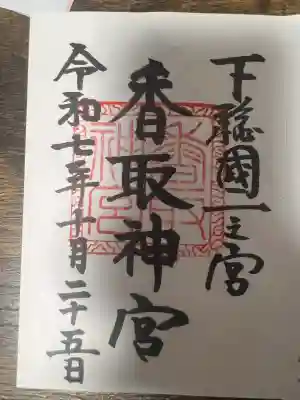 下総國一之宮
香取神宮
令和七年十月二十五日